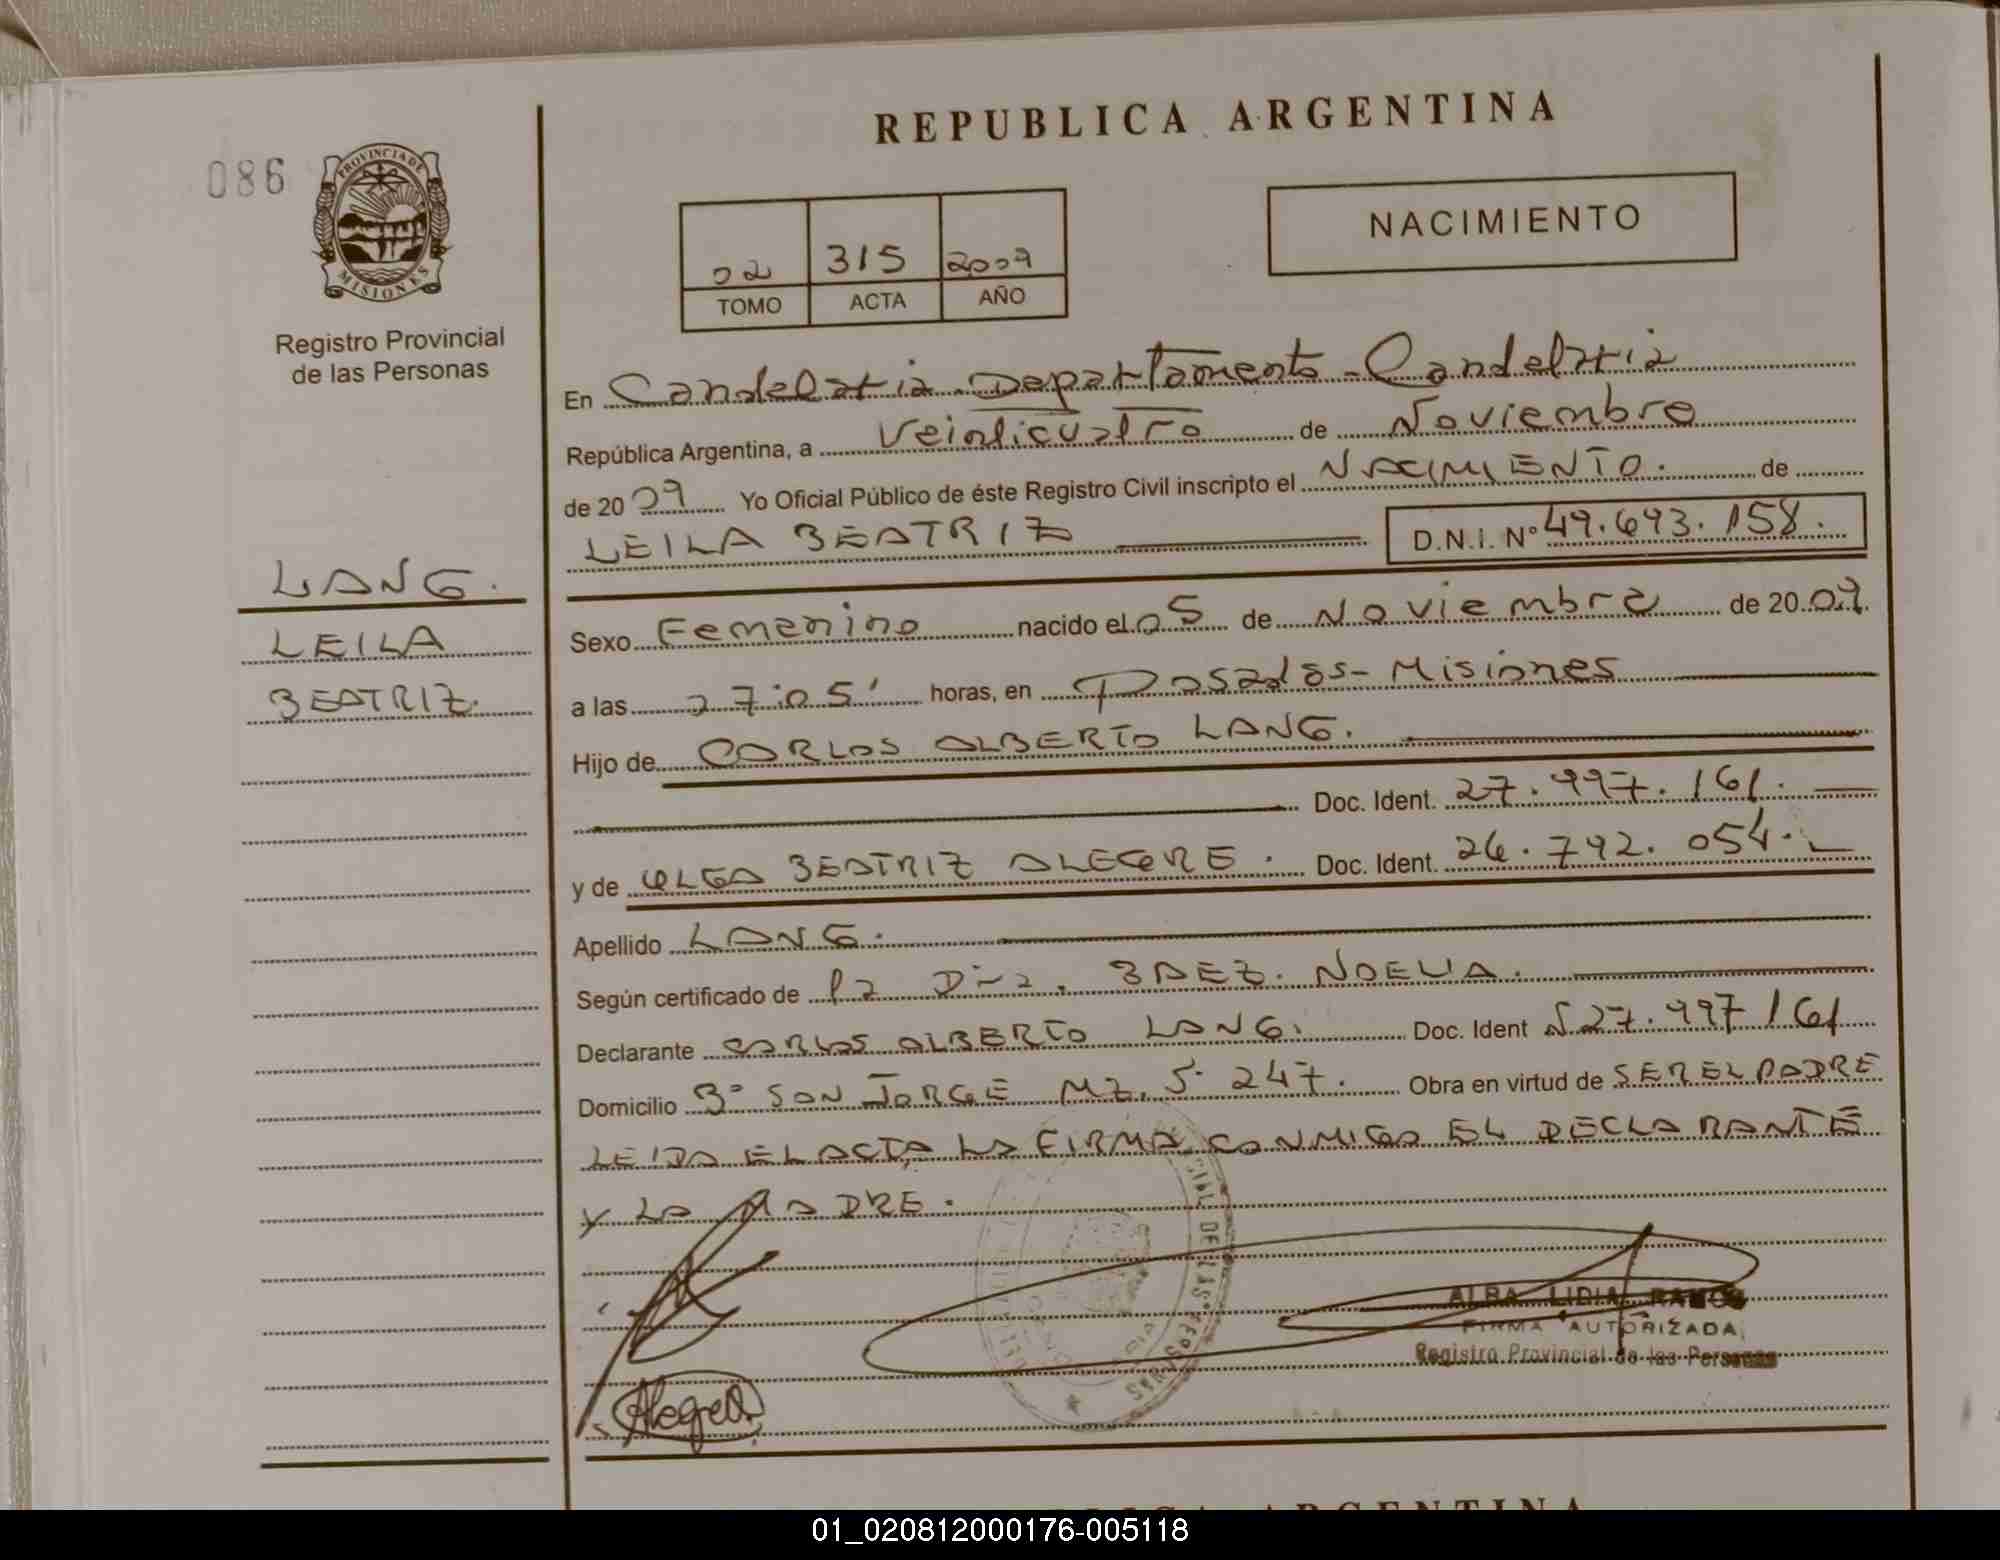 REPUBLICA ARGENTINA
086
PROVINCIA DE
MISIONES
Registro Provincial
de las Personas
NACIMIENTO
02 315 2009
TOMO ACTA AÑO
En Candelaria Departamento - Candelaria
República Argentina, a Veinticuatro de Noviembre
de 2009 Yo Oficial Público de éste Registro Civil inscripto el NACIMIENTO. de
LEILA BEATRIZ D.N.I. Nº 49.693.158.
LANG.
LEILA
BEATRIZ.
Sexo Femenino nacido el 05 de Noviembre de 2009.
a las 07:05' horas, en Posadas - Misiones
Hijo de CARLOS ALBERTO LANG.
Doc. Ident. 27.997.161.
y de OLGA BEATRIZ ALEGRE. Doc. Ident. 26.792.054.
Apellido LANG.
Según certificado de la Dra. BAEZ. NOELIA.
Declarante CARLOS ALBERTO LANG. Doc. Ident 27.997161
Domicilio Bº SAN JORGE MZ. S. 247. Obra en virtud de SER EL PADRE
LEIDA EL ACTA, LA FIRMA CONMIGO EL DECLARANTE
Y LA MADRE.
ALBA LIDIA RAMOS
FIRMA AUTORIZADA
Registro Provincial de las Personas
Alegre
REPUBLICA ARGENTINA
01_020812000176-005118